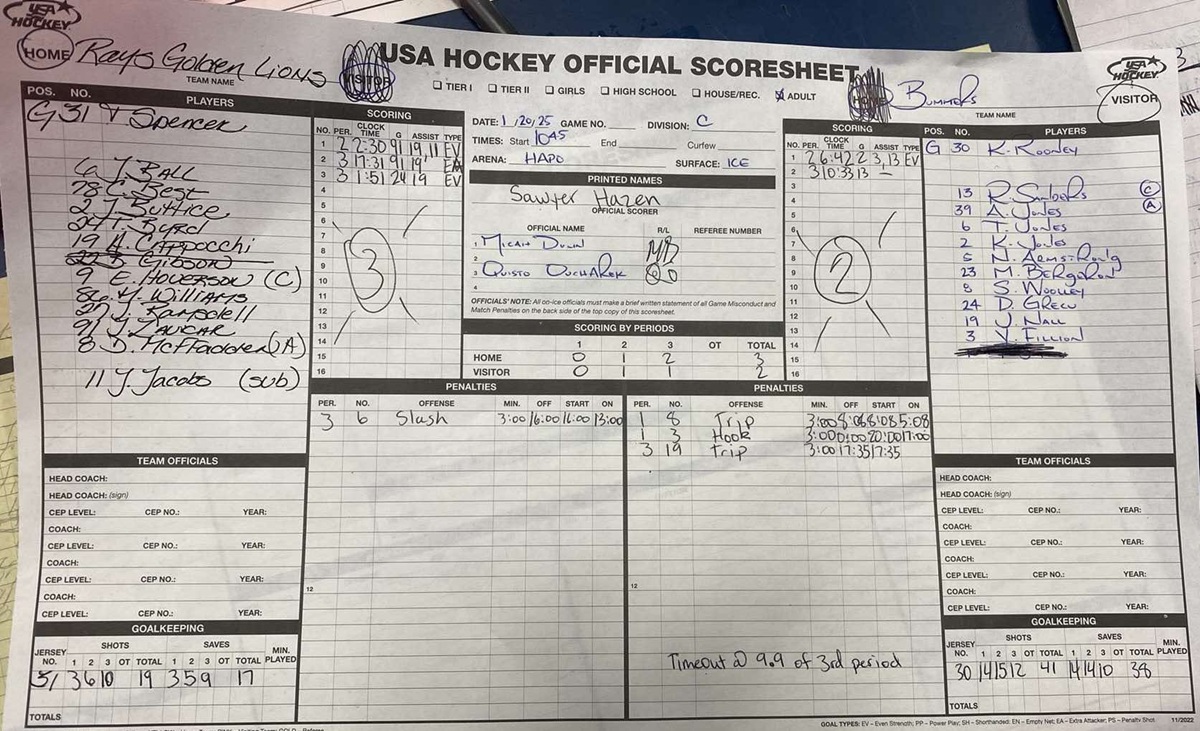 USA HOCKEY
HOME Rays Golden Lions
TEAM NAME
VISITOR
USA HOCKEY OFFICIAL SCORESHEET
☐ TIER I ☐ TIER II ☐ GIRLS ☐ HIGH SCHOOL ☐ HOUSE/REC. ☑ ADULT
Bummers
TEAM NAME
USA HOCKEY
VISITOR
POS. NO. PLAYERS
G 31 Spencer
6 J. BALL
78 C. Best
2 J. Buttice
24 T. Byrd
19 A. Cappocchi
22 J. Gibson
9 E. Hoverson (C)
86 M. Williams
27 J. Ramsdell
91 J. Zaucar
8 D. McFfadden (A)
11 J. Jacobs (sub)
SCORING
NO. PER. CLOCK TIME G ASSIST TYPE
1 2 2:30 91 19, 11 EV
2 3 17:31 91 19
3 3 1:51 24 19 EV
4
5
6
7
8
9
10
11
12
13
14
15
16
3
DATE: 1/20/25 GAME NO. DIVISION: C
TIMES: Start 1045 End Curfew
ARENA: HAPO SURFACE: ICE
PRINTED NAMES
Sawyer Hazen
OFFICIAL SCORER
OFFICIAL NAME R/L REFEREE NUMBER
1 Micah Dunn
2
3 Quisto Oucharek
4
OFFICIALS' NOTE: All on-ice officials must make a brief written statement of all Game Misconduct and
Match Penalties on the back side of the top copy of this scoresheet.
SCORING BY PERIODS
1 2 3 OT TOTAL
HOME 0 1 2 3
VISITOR 0 1 1 2
SCORING
NO. PER. CLOCK TIME G ASSIST TYPE
1 2 6:42 2 3, 13 EV
2 3 10:33 13 –
3
4
5
6
7
8
9
10
11
12
13
14
15
16
2
POS. NO. PLAYERS
G 30 K. Rooney
13 R. Sanbers C
39 A. Jones A
6 T. Jones
2 K. Jones
5 N. Armstrong
23 M. Bergeron
8 S. Woolley
24 D. Greco
19 J. Nall
3 V. Fillion
PENALTIES
PER. NO. OFFENSE MIN. OFF START ON
3 6 Slash 3:00 16:00 16:00 13:00
12
PENALTIES
PER. NO. OFFENSE MIN. OFF START ON
1 8 Trip 3:00 8:08 8:08 5:08
1 3 Hook 3:00 0:00 20:00 17:00
3 19 Trip 3:00 17:35 17:35
12
Timeout @ 9.9 of 3rd period
TEAM OFFICIALS
HEAD COACH:
HEAD COACH: (sign)
CEP LEVEL: CEP NO.: YEAR:
COACH:
CEP LEVEL: CEP NO.: YEAR:
COACH:
CEP LEVEL: CEP NO.: YEAR:
COACH:
CEP LEVEL: CEP NO.: YEAR:
GOALKEEPING
SHOTS SAVES
JERSEY NO. 1 2 3 OT TOTAL 1 2 3 OT TOTAL MIN. PLAYED
31 3 6 10 19 3 5 9 17
TOTALS
TEAM OFFICIALS
HEAD COACH:
HEAD COACH: (sign)
CEP LEVEL: CEP NO.: YEAR:
COACH:
CEP LEVEL: CEP NO.: YEAR:
COACH:
CEP LEVEL: CEP NO.: YEAR:
COACH:
CEP LEVEL: CEP NO.: YEAR:
GOALKEEPING
SHOTS SAVES
JERSEY NO. 1 2 3 OT TOTAL 1 2 3 OT TOTAL MIN. PLAYED
30 14 15 12 41 14 14 10 38
TOTALS
GOAL TYPES: EV – Even Strength; PP – Power Play; SH – Shorthanded; EN – Empty Net; EA – Extra Attacker; PS – Penalty Shot 11/2022